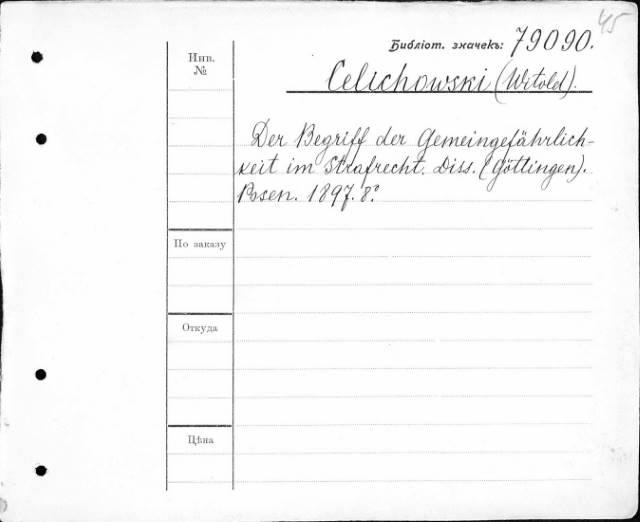 45
Библіот. значекъ: 79090.
Инв.
№
Celichowski (Witold).
Der Begriff der Gemeingefährlich-
keit im Strafrecht. Diss. (Göttingen).
Posen. 1897. 8°.
По заказу
Откуда
Цѣна